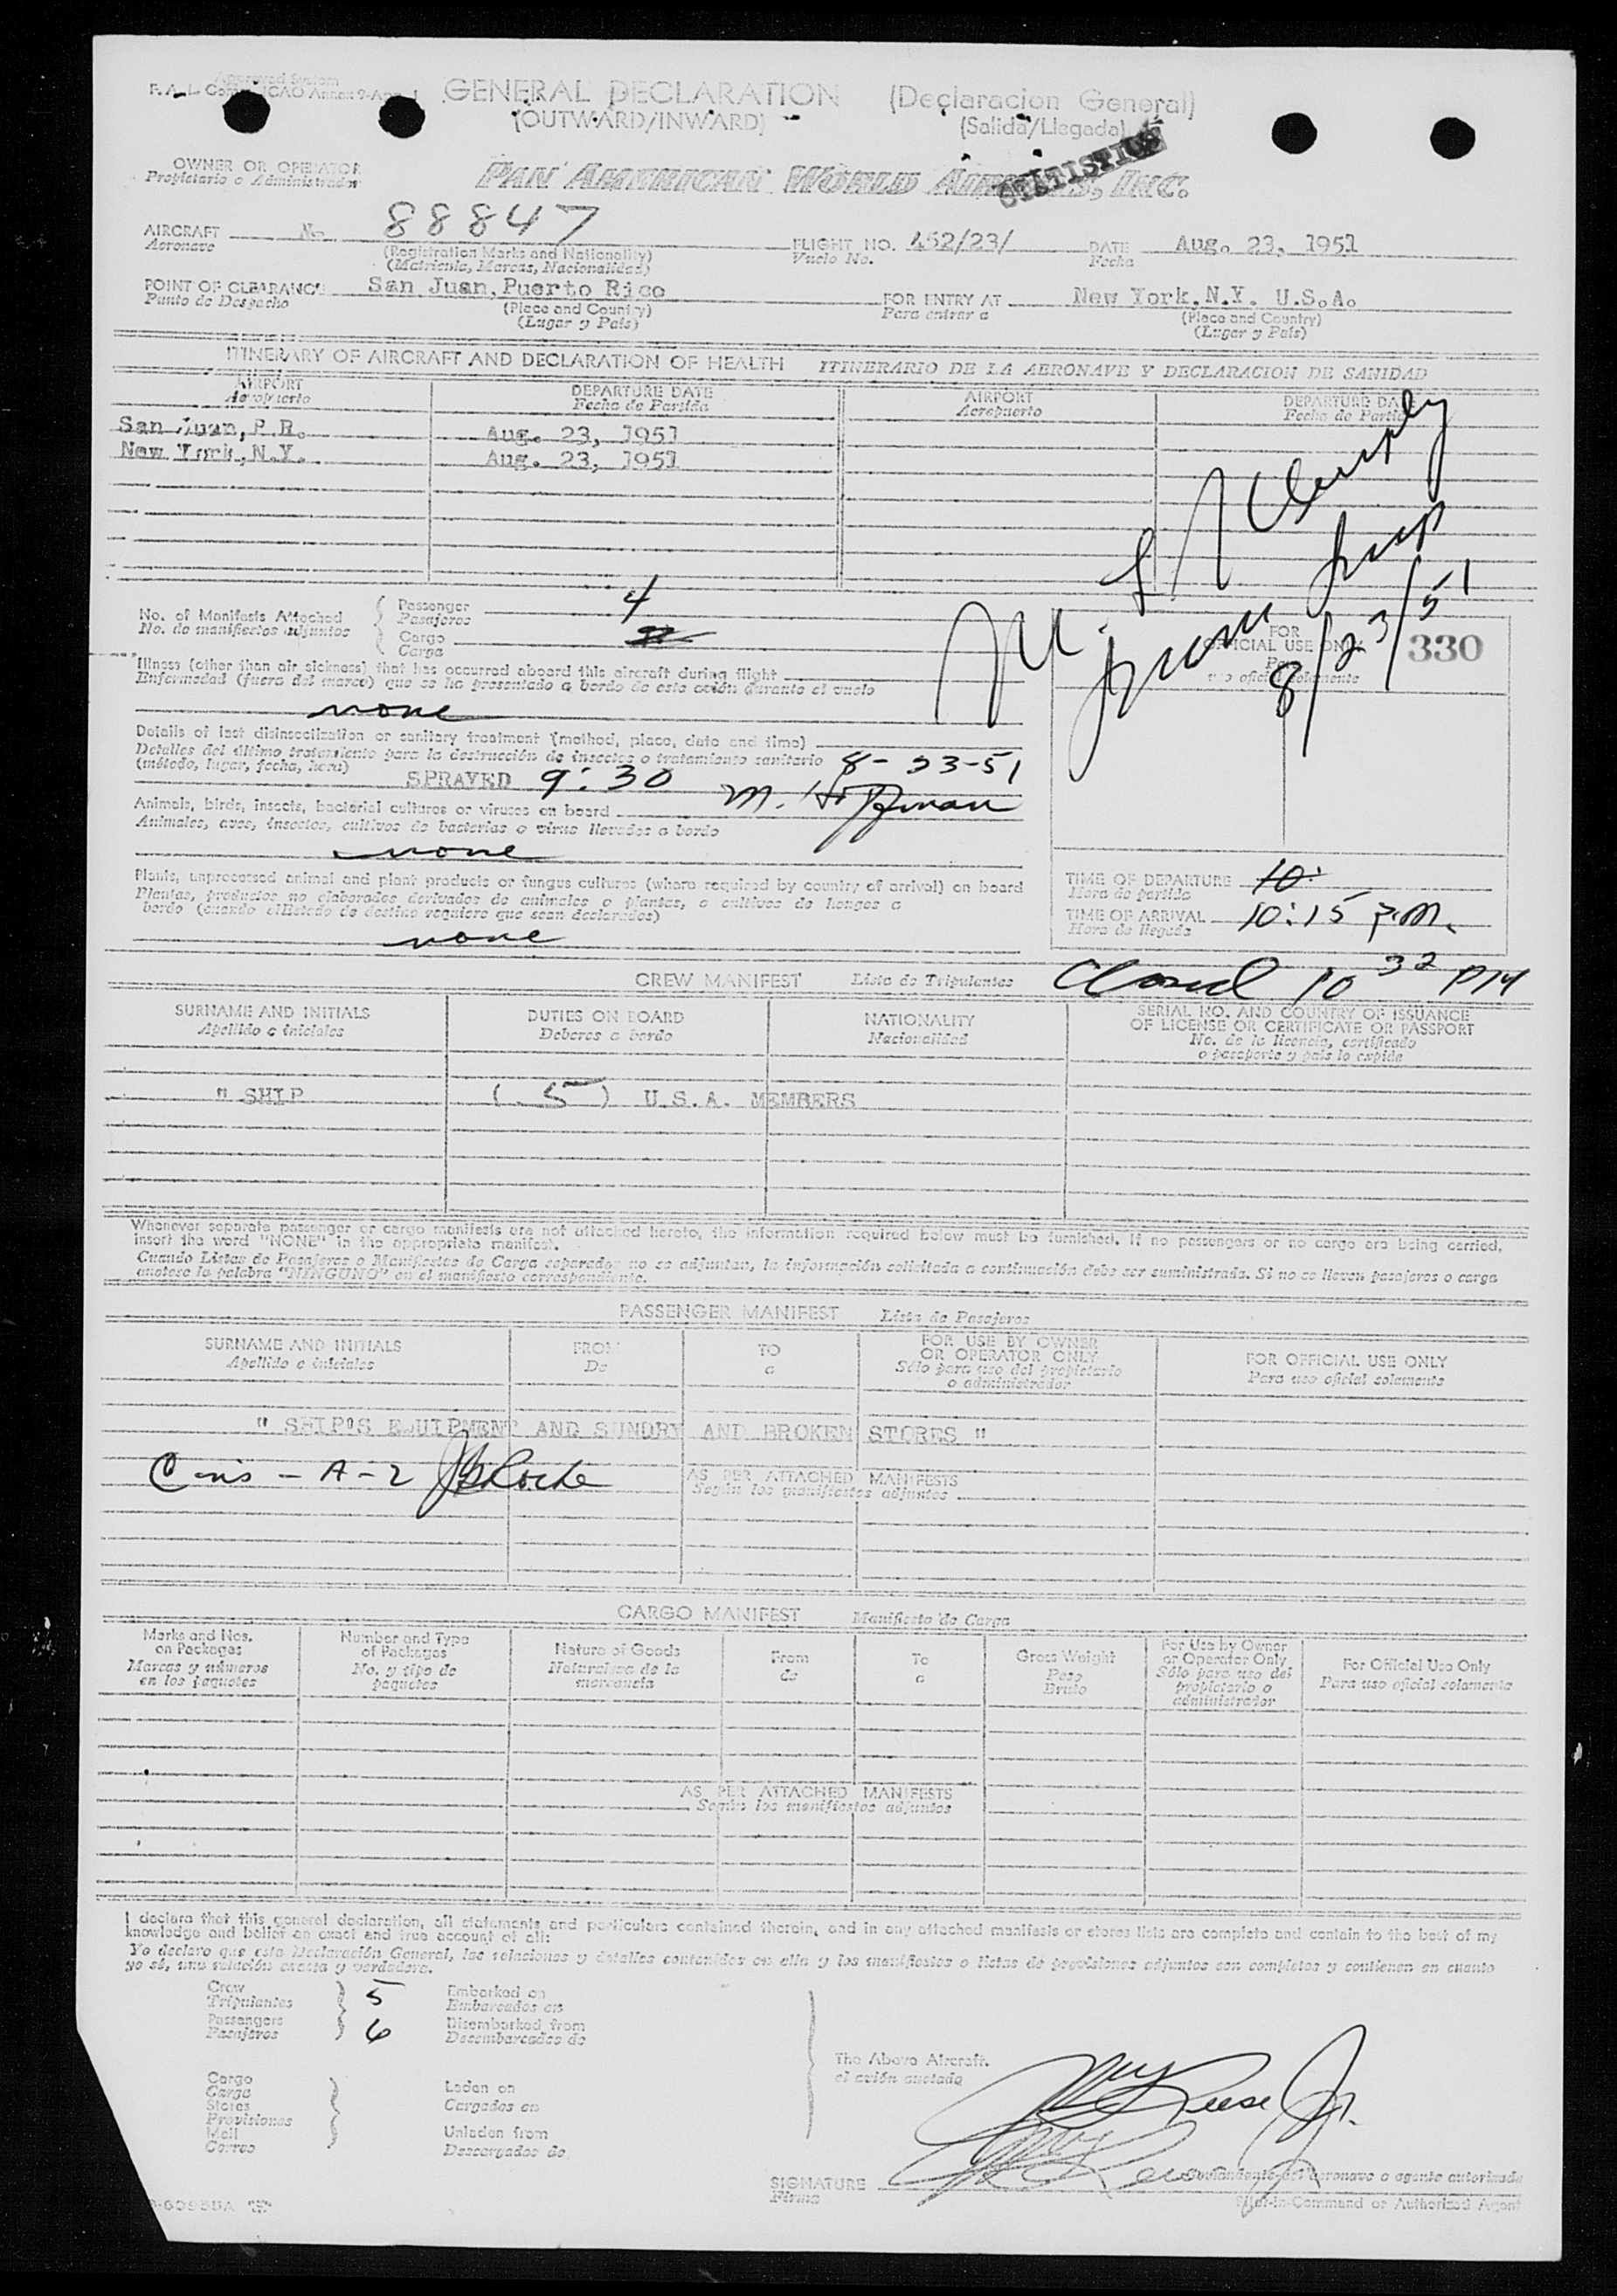 Approved System
GENERAL DECLARATION (Declaracion General)
(OUTWARD/INWARD) (Salida/Llegada)
STATISTICS
OWNER OR OPERATOR
Propietario o Administrador
PAN AMERICAN WORLD AIRWAYS, INC.
AIRCRAFT N- 88847 FLIGHT NO. 452/23/ DATE Aug. 23, 1951
Aeronave (Registration Marks and Nationality) Vuelo No. Fecha
(Matricula, Marcas, Nacionalidad)
POINT OF CLEARANCE San Juan, Puerto Rico FOR ENTRY AT New York, N.Y. U.S.A.
Punto de Despacho (Place and Country) Para entrar a (Place and Country)
(Lugar y País) (Lugar y País)
ITINERARY OF AIRCRAFT AND DECLARATION OF HEALTH ITINERARIO DE LA AERONAVE Y DECLARACION DE SANIDAD
AIRPORT DEPARTURE DATE AIRPORT DEPARTURE DATE
Aeropuerto Fecha de Partida Aeropuerto Fecha de Partida
San Juan, P.R. Aug. 23, 1951
New York, N.Y. Aug. 23, 1951
8/23/51
No. of Manifests Attached Passenger 4
No. de manifiestos adjuntos Pasajeros
Cargo
Carga
FOR
OFFICIAL USE ONLY 330
Para
uso oficial solamente
Illness (other than air sickness) that has occurred aboard this aircraft during flight
Enfermedad (fuera del mareo) que se ha presentado a bordo de este avión durante el vuelo
none
Details of last disinsectization or sanitary treatment (method, place, date and time)
Detalles del último tratamiento para la destrucción de insectos o tratamiento sanitario 8-23-51
(método, lugar, fecha, hora)
SPRAYED 9:30 M. Hoffman
Animals, birds, insects, bacterial cultures or viruses on board
Animales, aves, insectos, cultivos de bacterias o virus llevados a bordo
none
Plants, unprocessed animal and plant products or fungus cultures (where required by country of arrival) on board
Plantas, productos no elaborados derivados de animales o plantas, o cultivos de hongos a
bordo (cuando el Estado de destino requiere que sean declarados)
none
TIME OF DEPARTURE 10:
Hora de partida
TIME OF ARRIVAL 10:15 P.M.
Hora de llegada
CREW MANIFEST Lista de Tripulantes Closed 10 32 PM
SURNAME AND INITIALS DUTIES ON BOARD NATIONALITY SERIAL NO. AND COUNTRY OF ISSUANCE
Apellido e iniciales Deberes a bordo Nacionalidad OF LICENSE OR CERTIFICATE OR PASSPORT
No. de la licencia, certificado
o pasaporte y país lo expide
" SHIP ( 5 ) U.S.A. MEMBERS
Whenever separate passenger or cargo manifests are not attached hereto, the information required below must be furnished. If no passengers or no cargo are being carried,
insert the word "NONE" in the appropriate manifest.
Cuando Listas de Pasajeros o Manifiestos de Carga separados no se adjuntan, la información solicitada a continuación debe ser suministrada. Si no se llevan pasajeros o carga
anotese la palabra "NINGUNO" en el manifiesto correspondiente.
PASSENGER MANIFEST Lista de Pasajeros
SURNAME AND INITIALS FROM TO FOR USE BY OWNER OR OPERATOR ONLY FOR OFFICIAL USE ONLY
Apellido e iniciales De a Sólo para uso del propietario o administrador Para uso oficial solamente
" SHIP'S EQUIPMENT AND SUNDRY AND BROKEN STORES "
A-2
AS PER ATTACHED MANIFESTS
Según los manifiestos adjuntos
CARGO MANIFEST Manifiesto de Carga
Marks and Nos. on Packages Number and Type of Packages Nature of Goods From To Gross Weight For Use by Owner or Operator Only For Official Use Only
Marcas y números en los paquetes No. y tipo de paquetes Naturaleza de la mercancía de a Peso Bruto Sólo para uso del propietario o administrador Para uso oficial solamente
AS PER ATTACHED MANIFESTS
Según los manifiestos adjuntos
I declare that this general declaration, all statements and particulars contained therein, and in any attached manifests or stores lists are complete and contain to the best of my
knowledge and belief an exact and true account of all:
Yo declaro que esta Declaración General, las relaciones y detalles contenidos en ella y los manifiestos o listas de provisiones adjuntos son completos y contienen en cuanto
yo sé, una relación exacta y verdadera.
Crew 5 Embarked on
Tripulantes Embarcados en
Passengers 6 Disembarked from
Pasajeros Desembarcados de
The Above Aircraft.
el avión anotado
Cargo Laden on
Carga Cargados en
Stores
Provisiones
Mail Unladen from
Correo Descargados de
Reese Jr.
SIGNATURE Comandante del aeronave o agente autorizado
Firma Pilot-in-Command or Authorized Agent